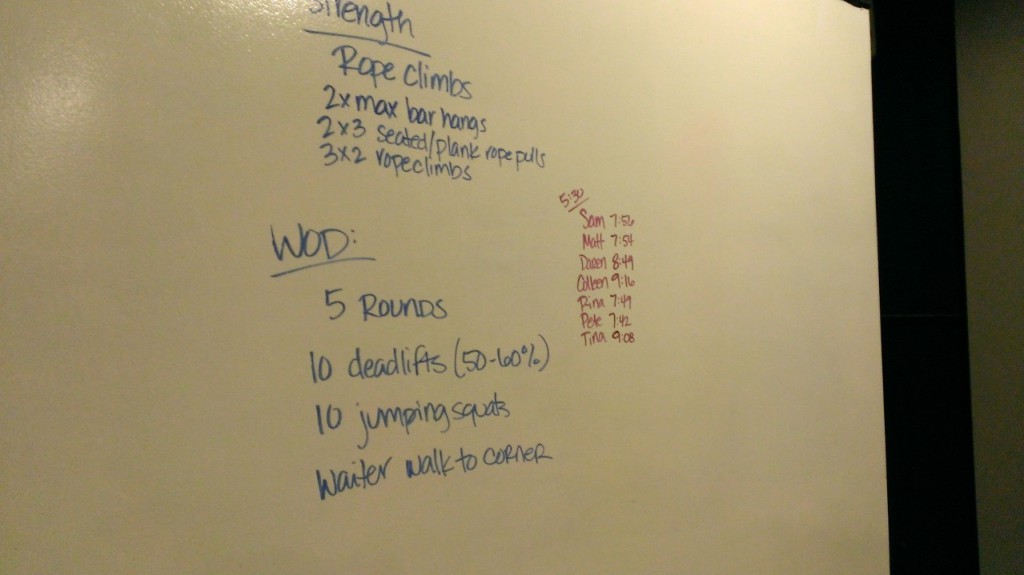 Strength
Rope climbs
2x max bar hangs
2x3 seated/plank rope pulls
3x2 rope climbs
WOD:
5 ROUNDS
10 deadlifts (50-60%)
10 jumping squats
Waiter walk to CORNER
5:30
Sam 7:56
Matt 7:54
Daren 8:49
Colleen 9:16
Rina 7:49
Pete 7:42
Tina 9:08